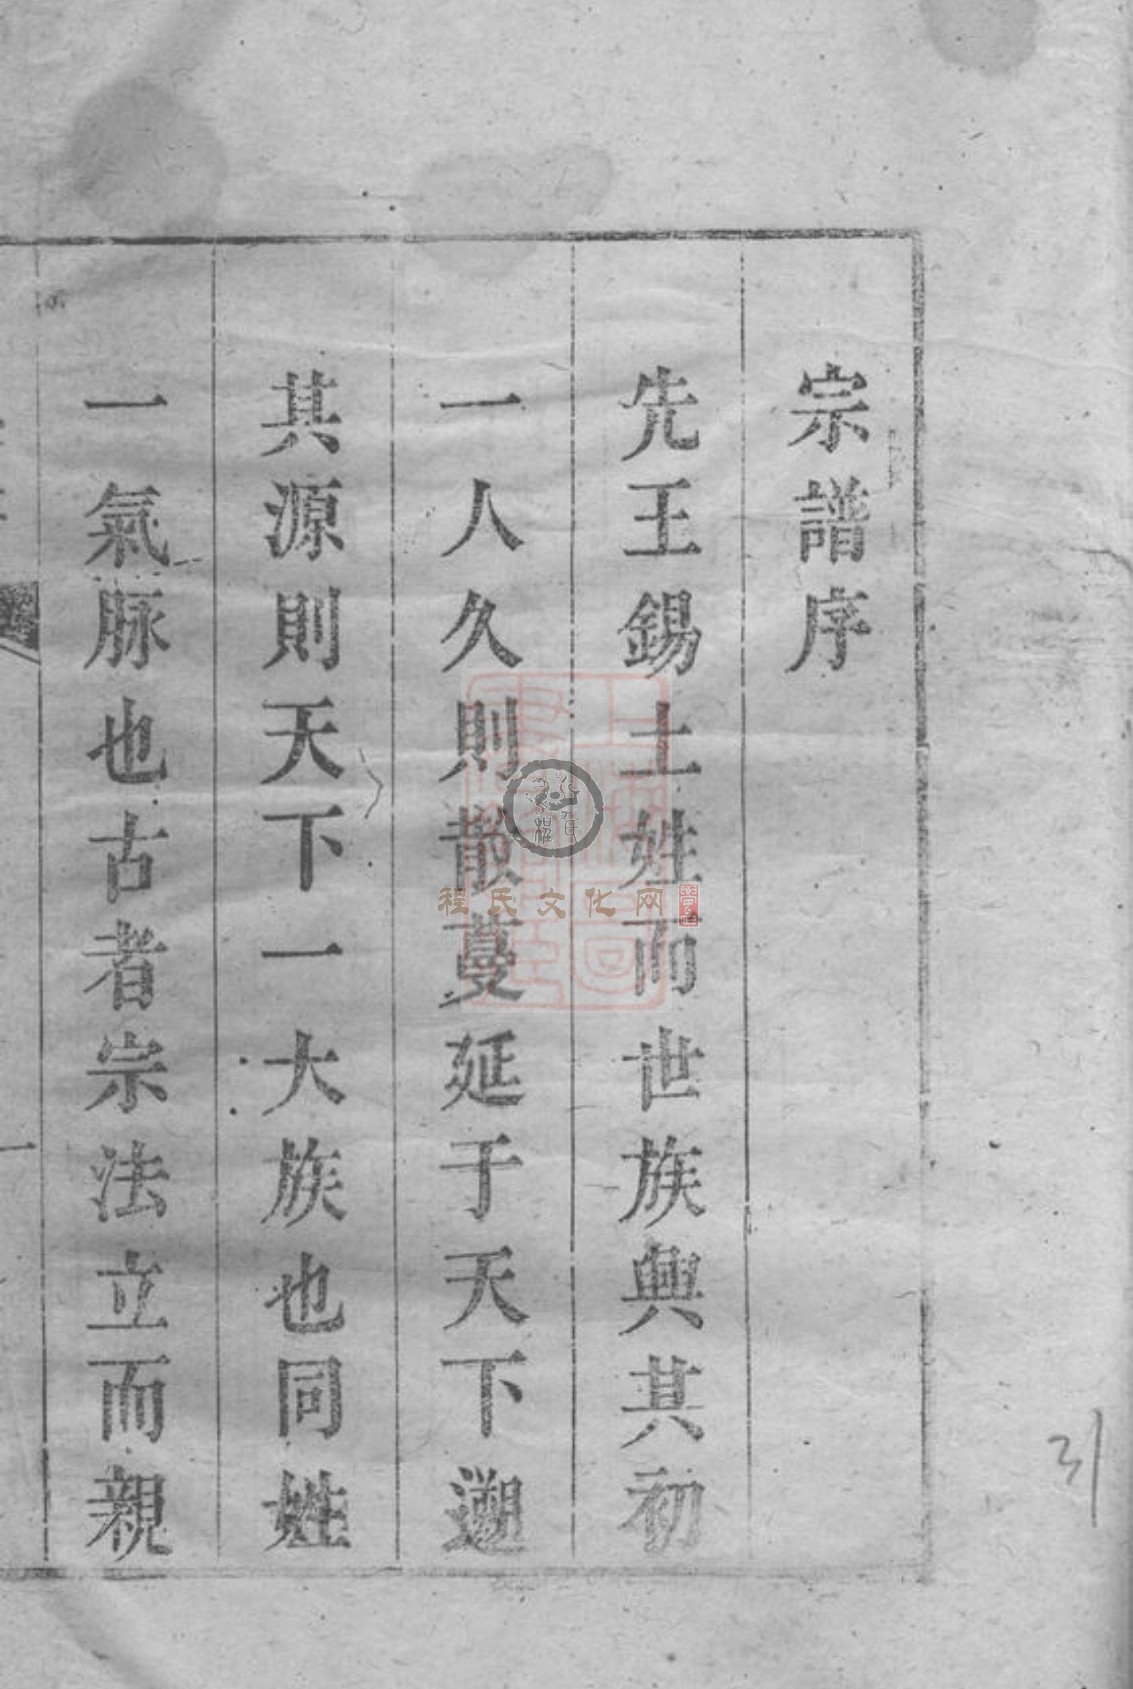 宗譜序
先王錫土姓而世族興其初
一人久則散蔓延于天下遡
其源則天下一大族也同姓
一氣脉也古者宗法立而親
程氏文化网
31